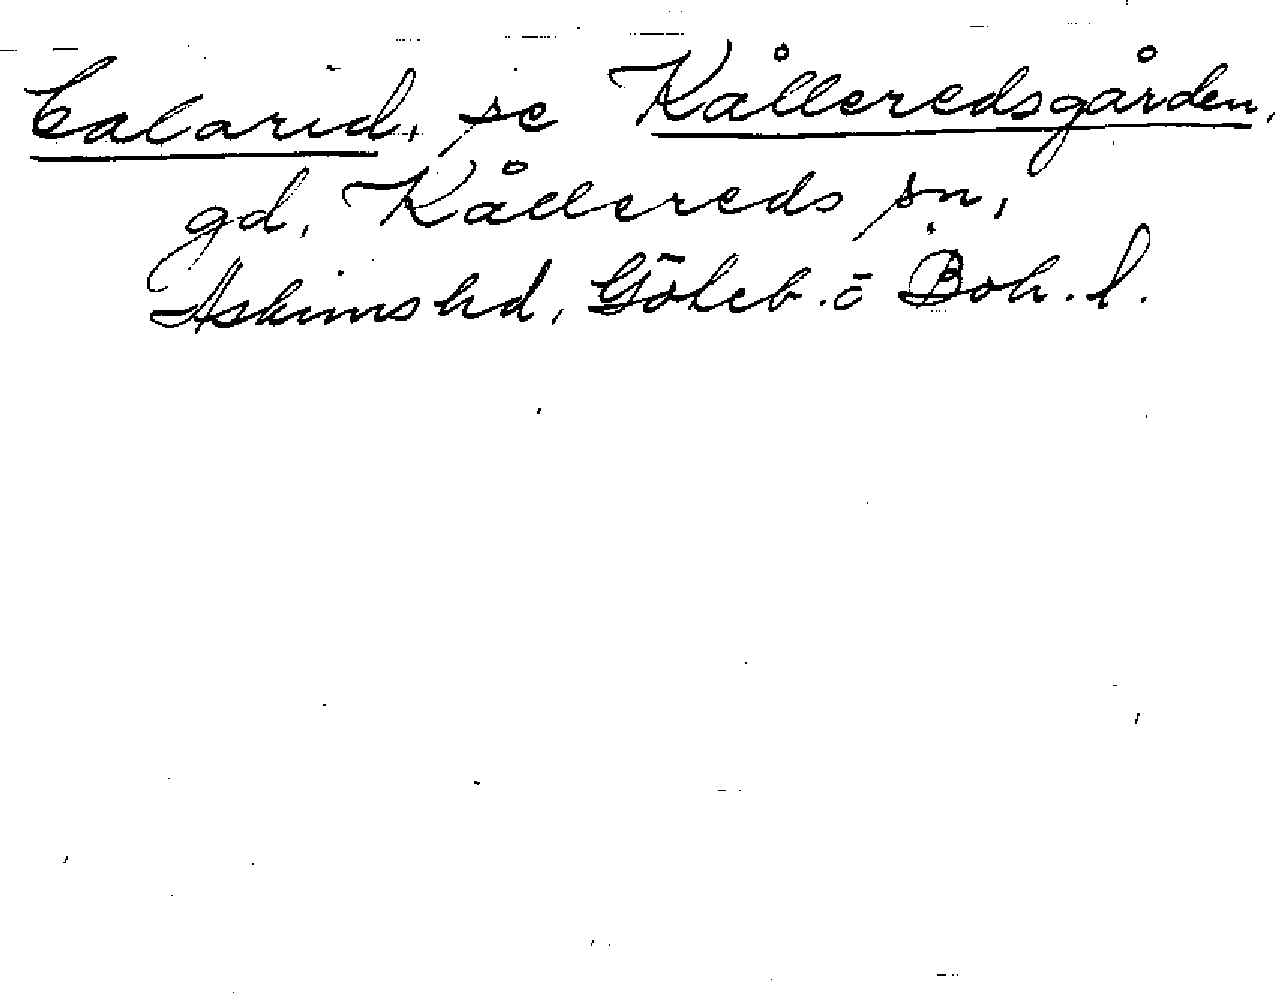 Calarid, se Kålleredsgården,
gd, Kållereds sn,
Askims hd, Göteb. o Boh. l.